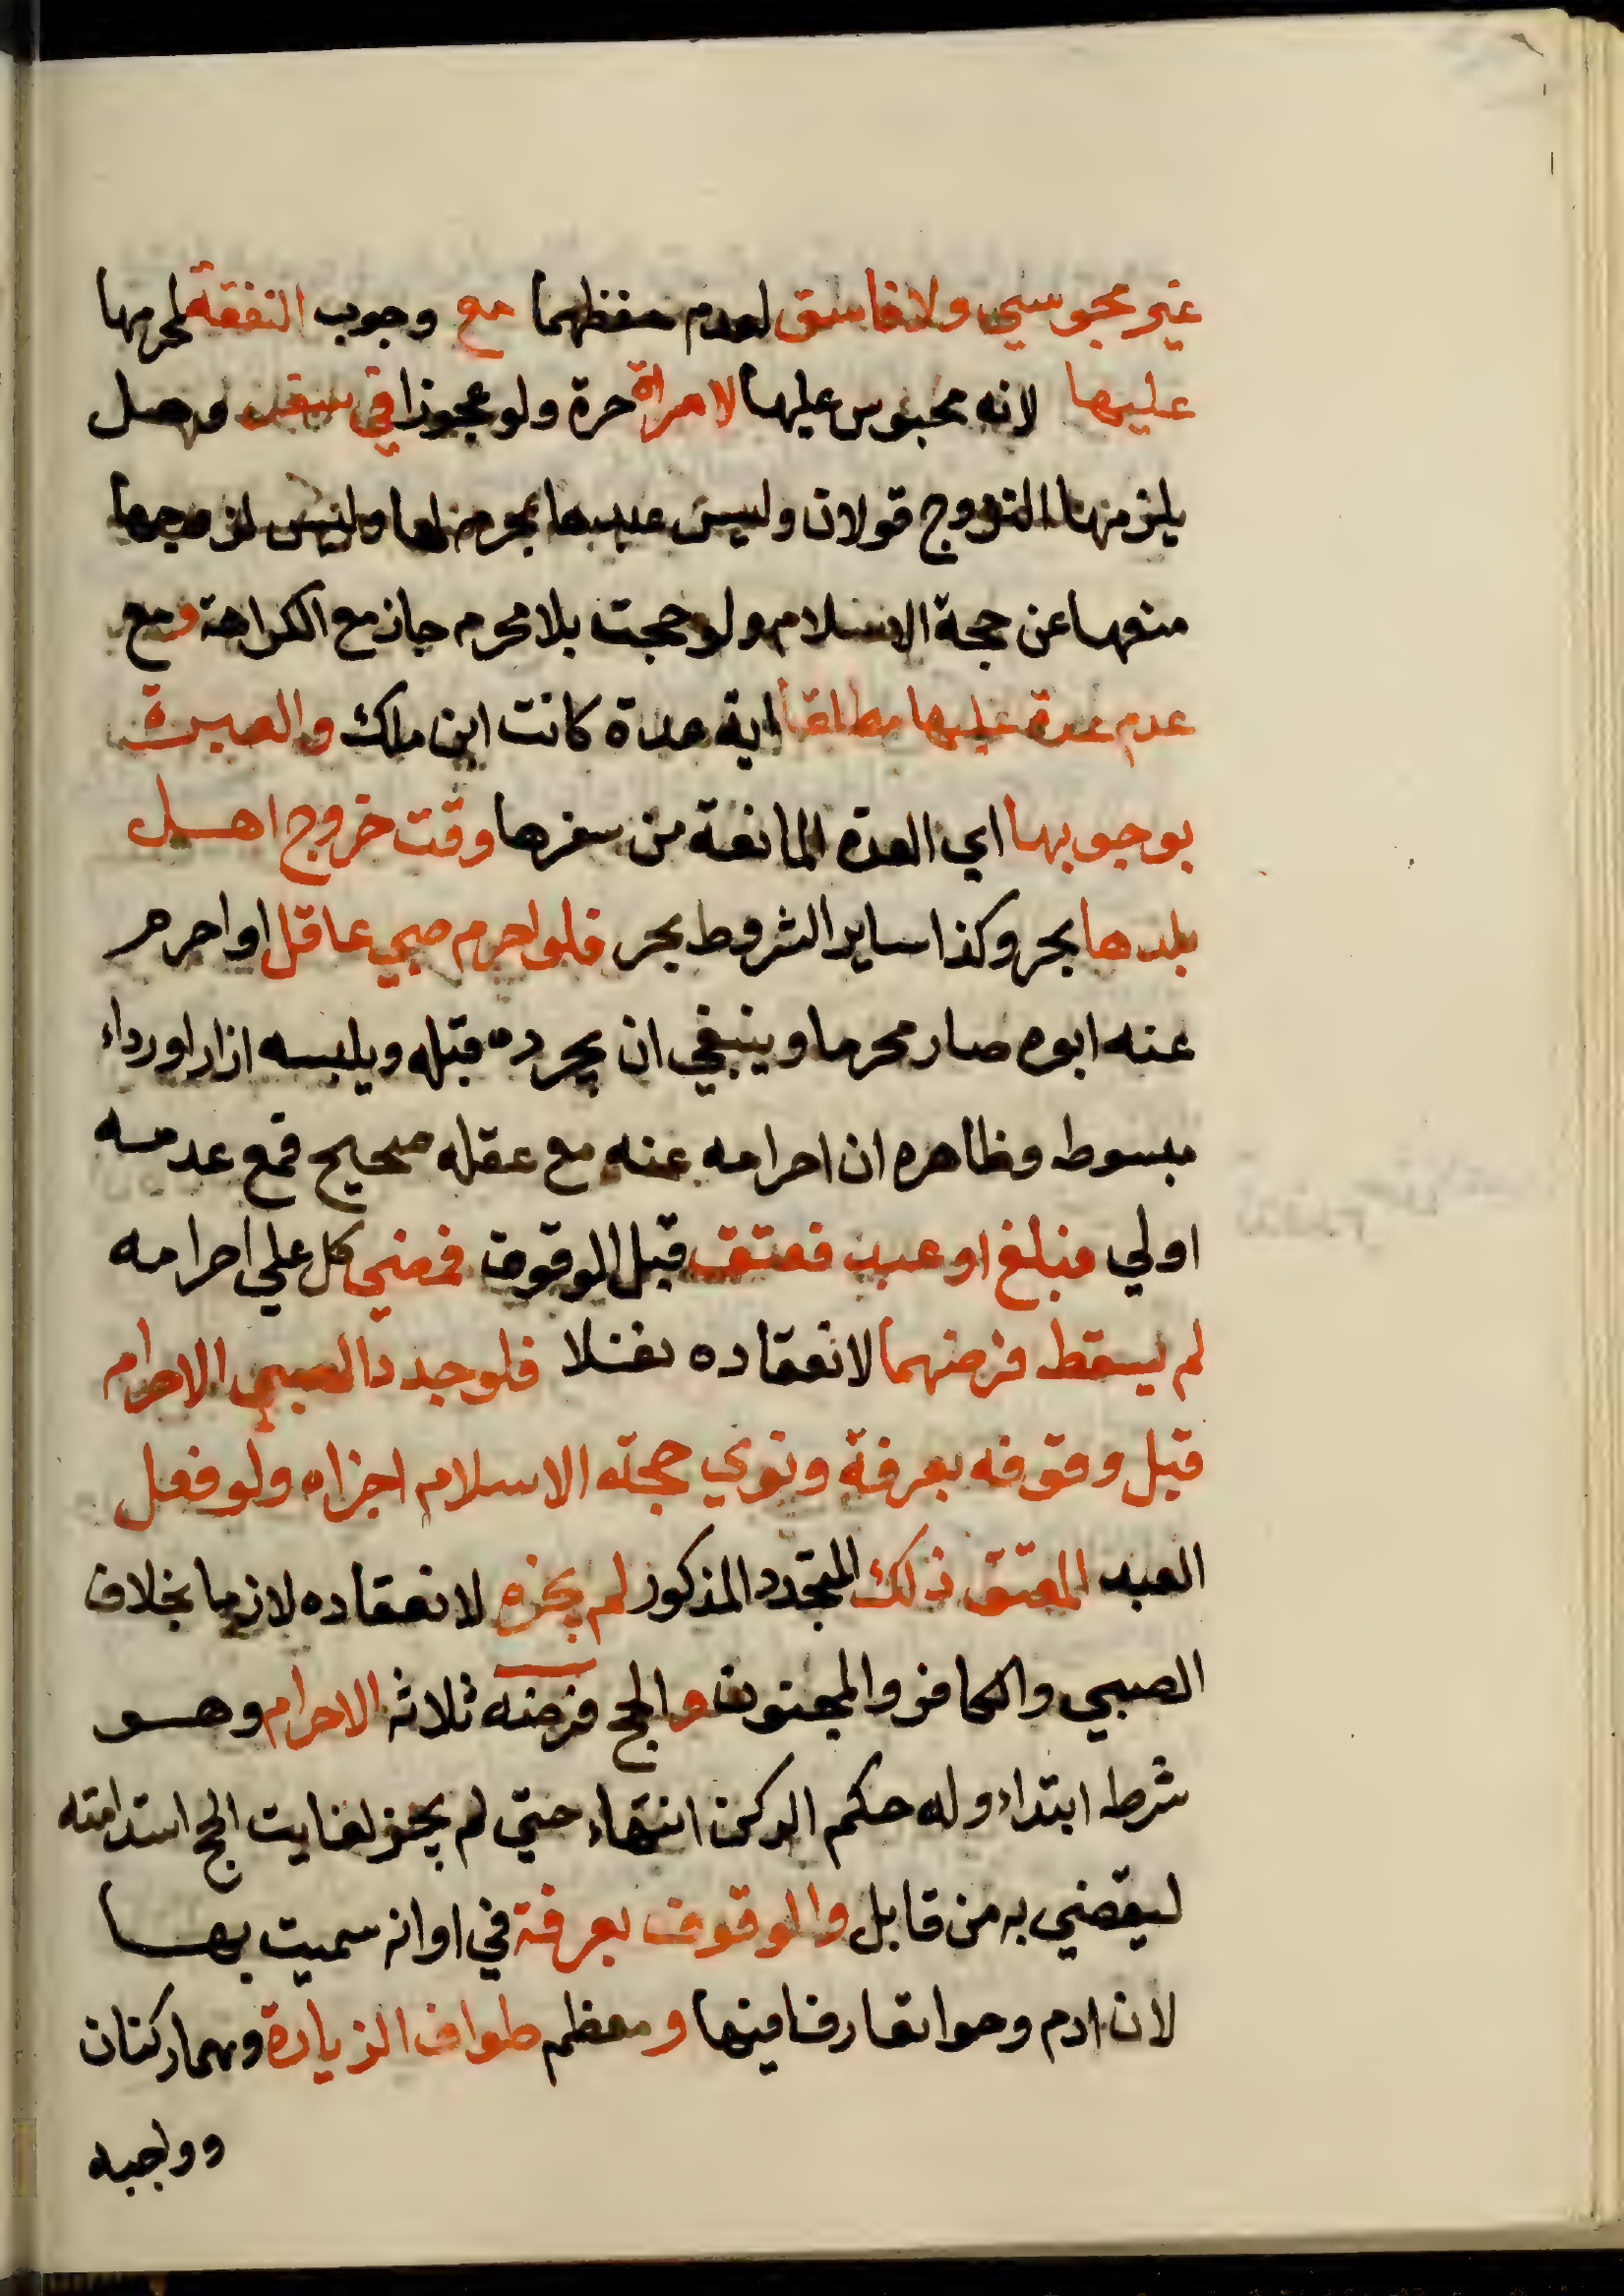 غير مجوسي ولا فاسق لعدم حفظهما مع وجوب النفقة لمحرمها
عليها لانه محبوس عليها لامراة حرة ولو عجوزا في سفر وهل
يلزمها التزوج قولان وليس عبدها بمحرم لها وليس لزوجها
منعها عن حجة الاسلام ولو حجت بلا محرم جاز مع الكراهة ومع
عدم عدة عليها مطلقا اية عدة كانت ابن ملك والعبرة
بوجوبها اي العدة المانعة من سفرها وقت خروج اهل
بلدها بحر وكذا ساير الشروط بحر فلو احرم صبي عاقل او احرم
عنه ابوه صار محرما وينبغي ان يجرده قبله ويلبسه ازارا ورداء
مبسوط وظاهره ان احرامه عنه مع عقله صحيح فمع عدمه
اولي فبلغ او عبد فعتق قبل الوقوف فمضي كل علي احرامه
لم يسقط فرضهما لانعقاده نفلا فلو جدد الصبي الاحرام
قبل وقوفه بعرفة ونوي حجة الاسلام اجزاه ولو فعل
العبد المعتق ذلك المتجدد المذكور لم يجزه لانعقاده لازما بخلاف
الصبي والكافر والمجنون والحج فرضه ثلاثة الاحرام وهو
شرط ابتداء وله حكم الركن انتهاء حتي لم يجز لفايت الحج استدامته
ليقضي به من قابل والوقوف بعرفة في اوانه سميت بها
لان ادم وحوا تعارفا فيها ومعظم طواف الزيارة وهما ركنان
وواجبه